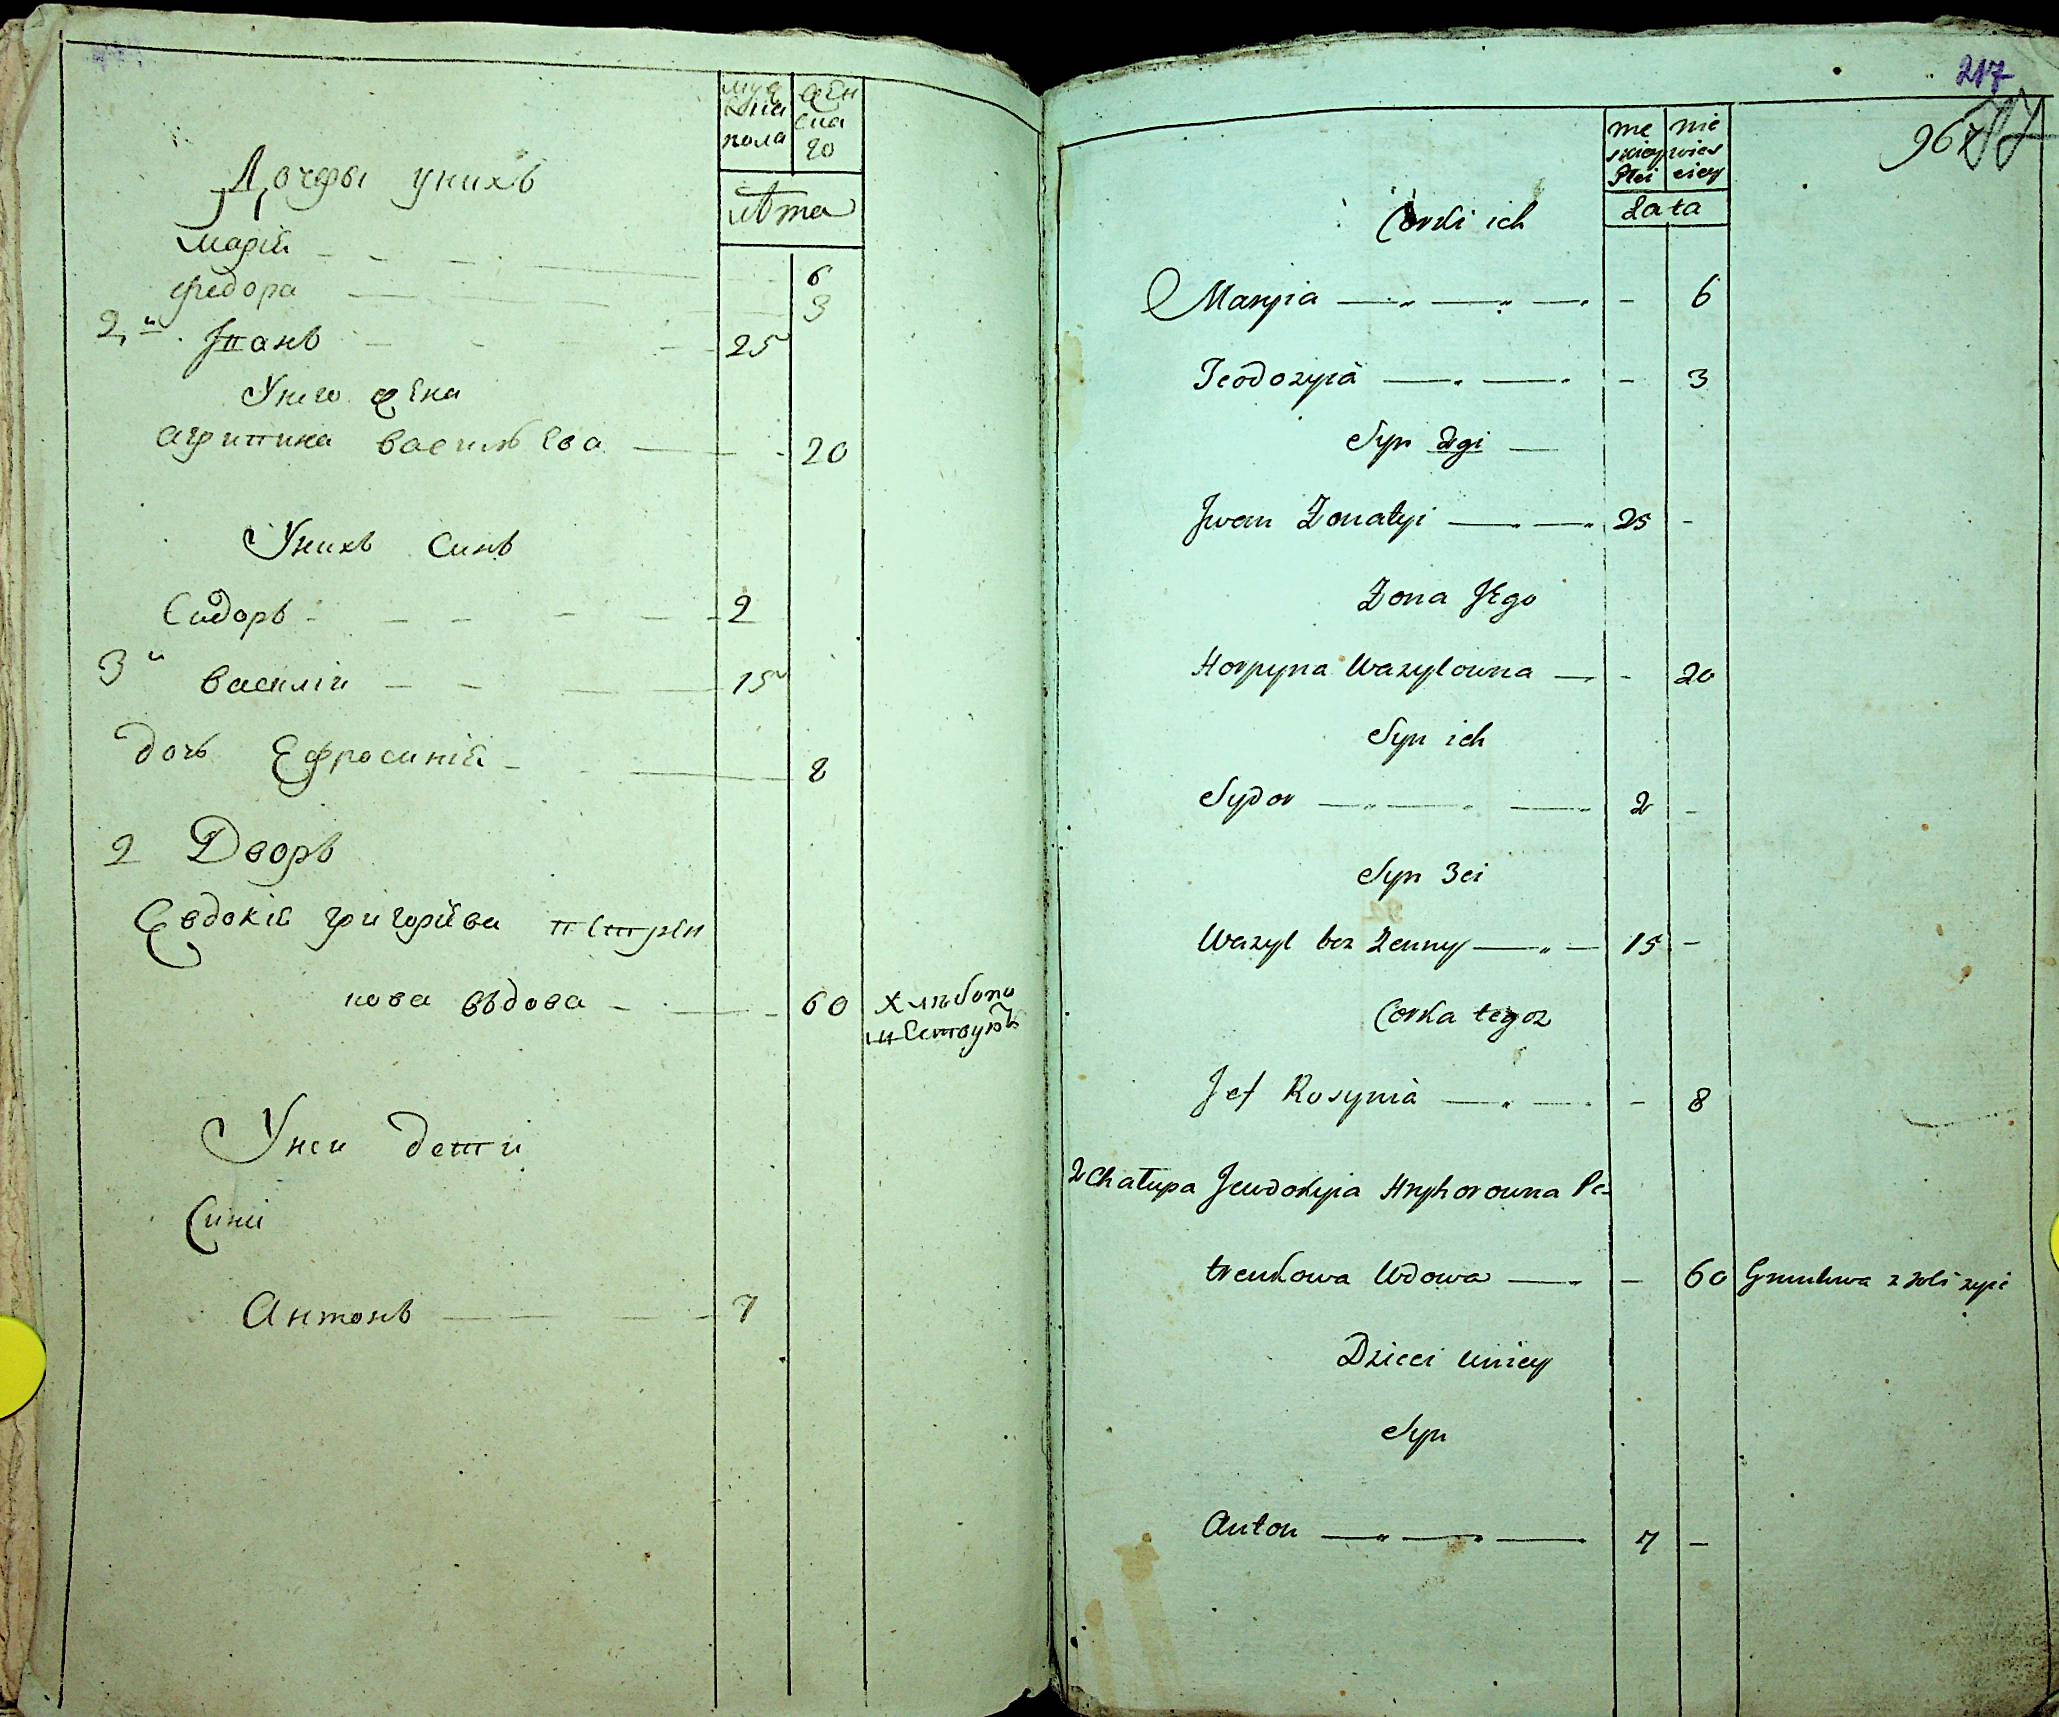 муж
ска
пола
жен
ска
го
Дочеры унихъ
лѣта
Марій 6
Федора 3
2й Іванъ 25
Унего жена
Агрипина Васильева 20
Унихъ синъ
Сидоръ 2
3й Василій 15
дочь Ефросиній 8
2 Дворъ
Евдокій григорйева петрен
кова вѣдова 60 хлѣбопа
шествуютъ
Унеи дети
Сини
Антонъ 7
217
967
me
skiey
Płci
nie
wies
ciey
Corki ich
Lata
Maryia 6
Teodozyia 3
Syn drgi
Jwan Żonatyi 25 -
Żona Jego
Horpyna Wazylowna - 20
Syn ich
Sydor 2 -
Syn 3ci
Wazyl bez Żenny 15 -
Corka tegoz
Jef Rosynia - 8
2 Chałupa Jewdokyia Hryhorowna Pe-
trenkowa Wdowa - 60 Gruntowa z roli zyie
Dzieci Uniey
Syn
Anton 7 -